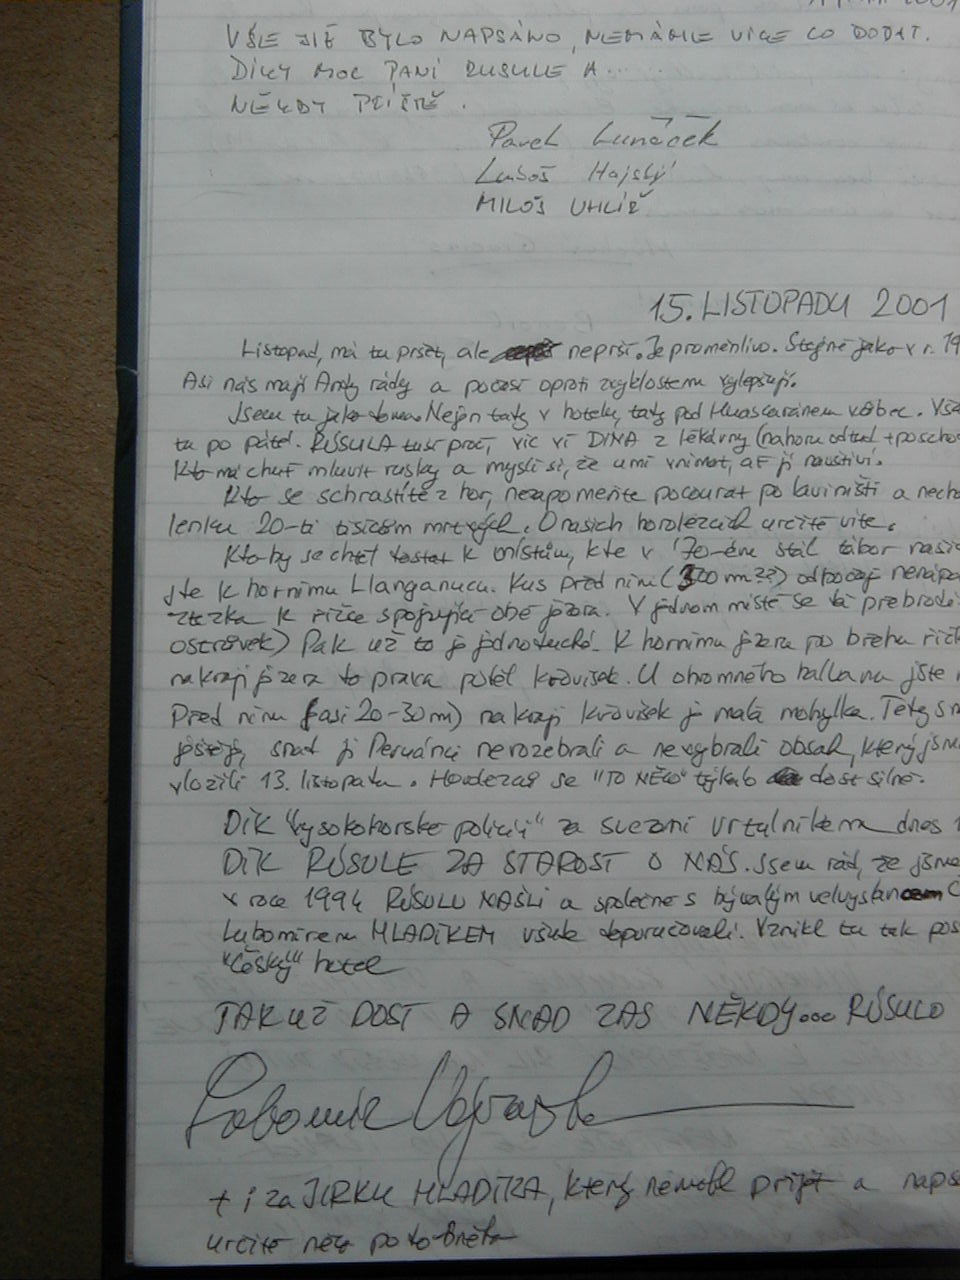 2001
VŠE JIŽ BYLO NAPSÁNO, NEMÁME VÍCE CO DODAT.
DÍKY MOC PANÍ RUSULE A.....
NĚKDY PŘÍŠTĚ.
Pavel Luňáček
Luboš Hajský
MILOŠ UHLÍŘ
15. LISTOPADU 2001
Listopad, má tu pršet, ale neprší. Je proměnlivo. Stejně jako v r. 19
Asi nás mají Andy rády a počasí oproti zvyklostem vylepšují.
Jsem tu jako doma. Nejen tady v hotelu, tady pod Huascaránem vůbec.
tu po páté. RÚSULA tuší proč, víc ví DINA z lékárny (nahoru odtud
Kdo má chuť mluvit rusky a myslí si, že umí vnímat, ať ji navštíví.
Kdo se schrastíte z hor, nezapomeňte pocourat po laviništi a
lenku 20-ti tisícům mrtvých. O našich horolezcích určitě víte.
Kdo by se chtěl dostat k místům, kde v 70-ém stál tábor
jte k hornímu Llanganucu. Kus před ním (300 m??) odbočují
stezka k říčce spojující obě jezera. V jednom místě se dá
ostrůvek) Pak už to je jednoduché. K hornímu jezeru po břehu
na kraji jezera do prava podél křovisek. U ohromného balvanu jste
Před ním (asi 20-30m) na kraji křovisek je malá mohylka.
ještěji, snad ji Peruánci nerozebrali a nevybrali obsah, který
vložili 13. listopadu. Houdezas se "TO NĚCO" týkalo dost silně.
DÍK "vysokohorské policii" za svezení vrtulníkem dnes
DÍK RÚSULE ZA STAROST O NÁS. Jsem rád, že jsme
v roce 1994 RÚSULU NAŠLI a společně s bývalým
Lubomírem HLADÍKEM všude doporučovali. Vznikl tu tak
"Český" hotel
TAK UŽ DOST A SNAD ZAS NĚKDY... RÚSULO
Lubomír
+ i za JIRKU HLADÍKA, který nemohl přijet a
určitě něco podobného